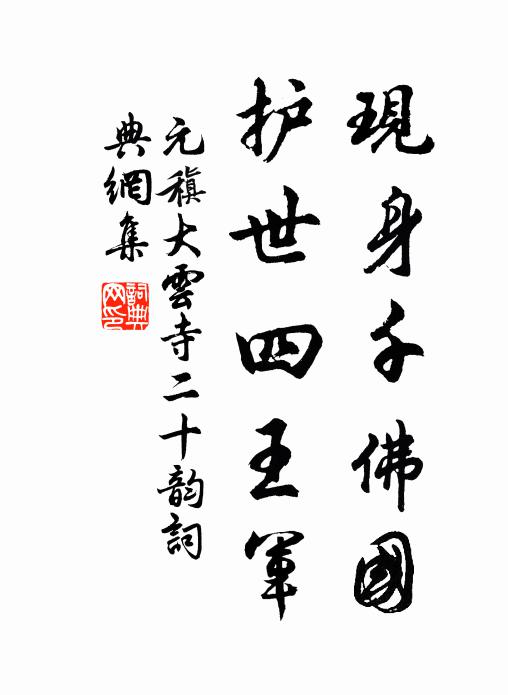 現身千佛國
护世四王軍
元稹大雲寺二十韵詞
典網集
詞典網印